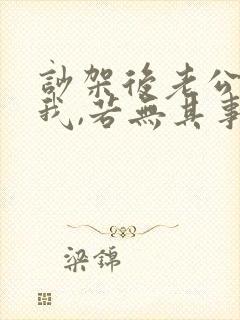 訬架後老公
我,若無其事
梁錦